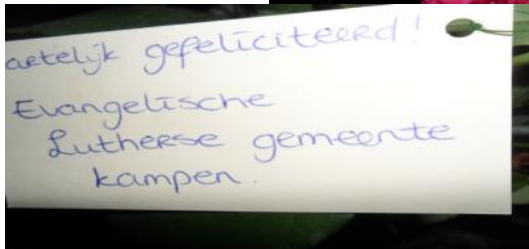 artelijk gefeliciteerd!
Evangelische
Lutherse gemeente
kampen.